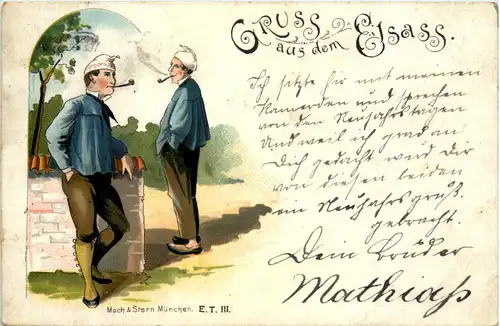 Gruss
aus dem Elsass.
Ich sitze hir mit meinen
Kamerden und sprechen
von den Neujahrstagen
Und weil ich grad an
Dich gedacht wird Dir
von diesen beiden
ein Neujahrsgruß
gebracht.
Dein Bruder
Mathiaß
Mach & Stern München. E. T. III.